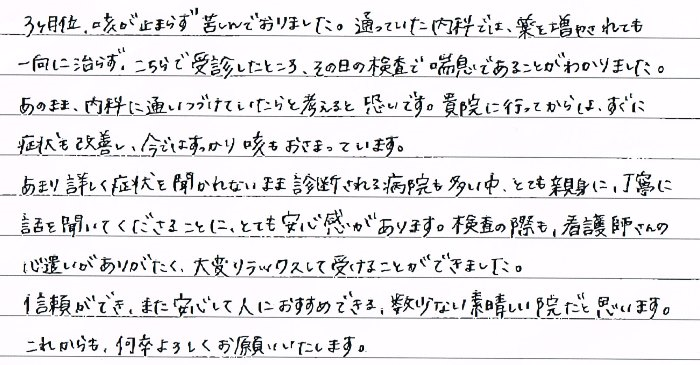 3ヶ月位、咳が止まらず苦しんでおりました。通っていた内科では、薬を増やされても
一向に治らず、こちらで受診したところ、その日の検査で喘息であることがわかりました。
あのまま、内科に通いつづけていたらと考えると恐いです。貴院に行ってからは、すぐに
症状も改善し、今ではすっかり咳もおさまっています。
あまり詳しく症状を聞かれないまま診断される病院も多い中、とても親身に、丁寧に
話を聞いてくださることに、とても安心感があります。検査の際も、看護師さんの
心遣いがありがたく、大変リラックスして受けることができました。
信頼ができ、また安心して人におすすめできる、数少ない素晴しい院だと思います。
これからも、何卒よろしくお願いいたします。